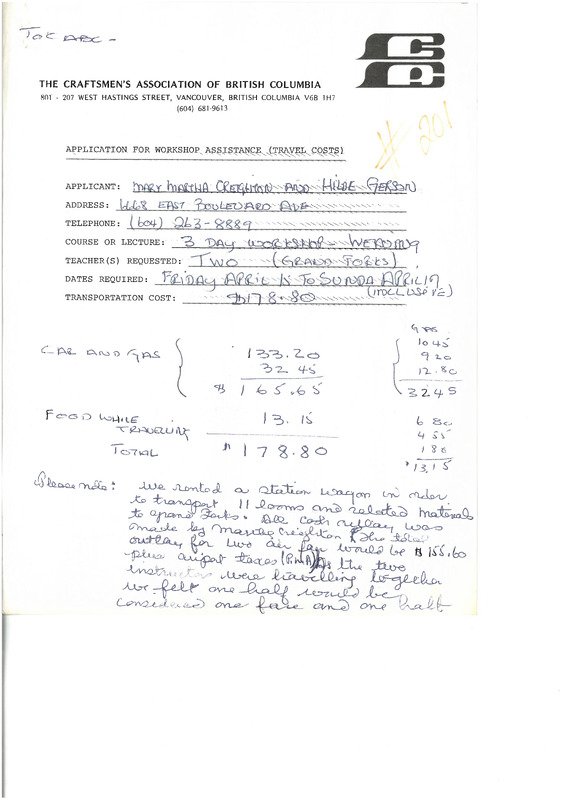 THE CRAFTSMEN'S ASSOCIATION OF BRITISH COLUMBIA
801 - 207 WEST HASTINGS STREET, VANCOUVER, BRITISH COLUMBIA V6B 1H7
(604) 681-9613
# 201
APPLICATION FOR WORKSHOP ASSISTANCE (TRAVEL COSTS)
APPLICANT: MARY MARTHA CREIGHTON AND HILDE GERSON
ADDRESS: 6668 EAST BOULEVARD AVE
TELEPHONE: (604) 263-8889
COURSE OR LECTURE: 3 DAY WORKSHOP - WEAVING
TEACHER(S) REQUESTED: TWO (GRAND FORKS)
DATES REQUIRED: FRIDAY APRIL 15 TO SUNDA APRIL 17
(INCLUSIVE)
TRANSPORTATION COST: $178.80
GAS
CAR AND GAS 133.20 10 45
32 45 9 20
$ 165.65 12.80
3245
FOOD WHILE TRAVELLING 13.15 6 80
4 55
TOTAL $ 178.80 1 80
$ 13,15
Please note: we rented a station wagon in order
to transport 11 looms and related materials
to Grand Forks. All cash outlay was
made by Martha Creighton. The total
outlay for two air fare would be $155.60
plus airport taxes As the two
instructors were travelling together
we felt one half would be
considered one fare and one half